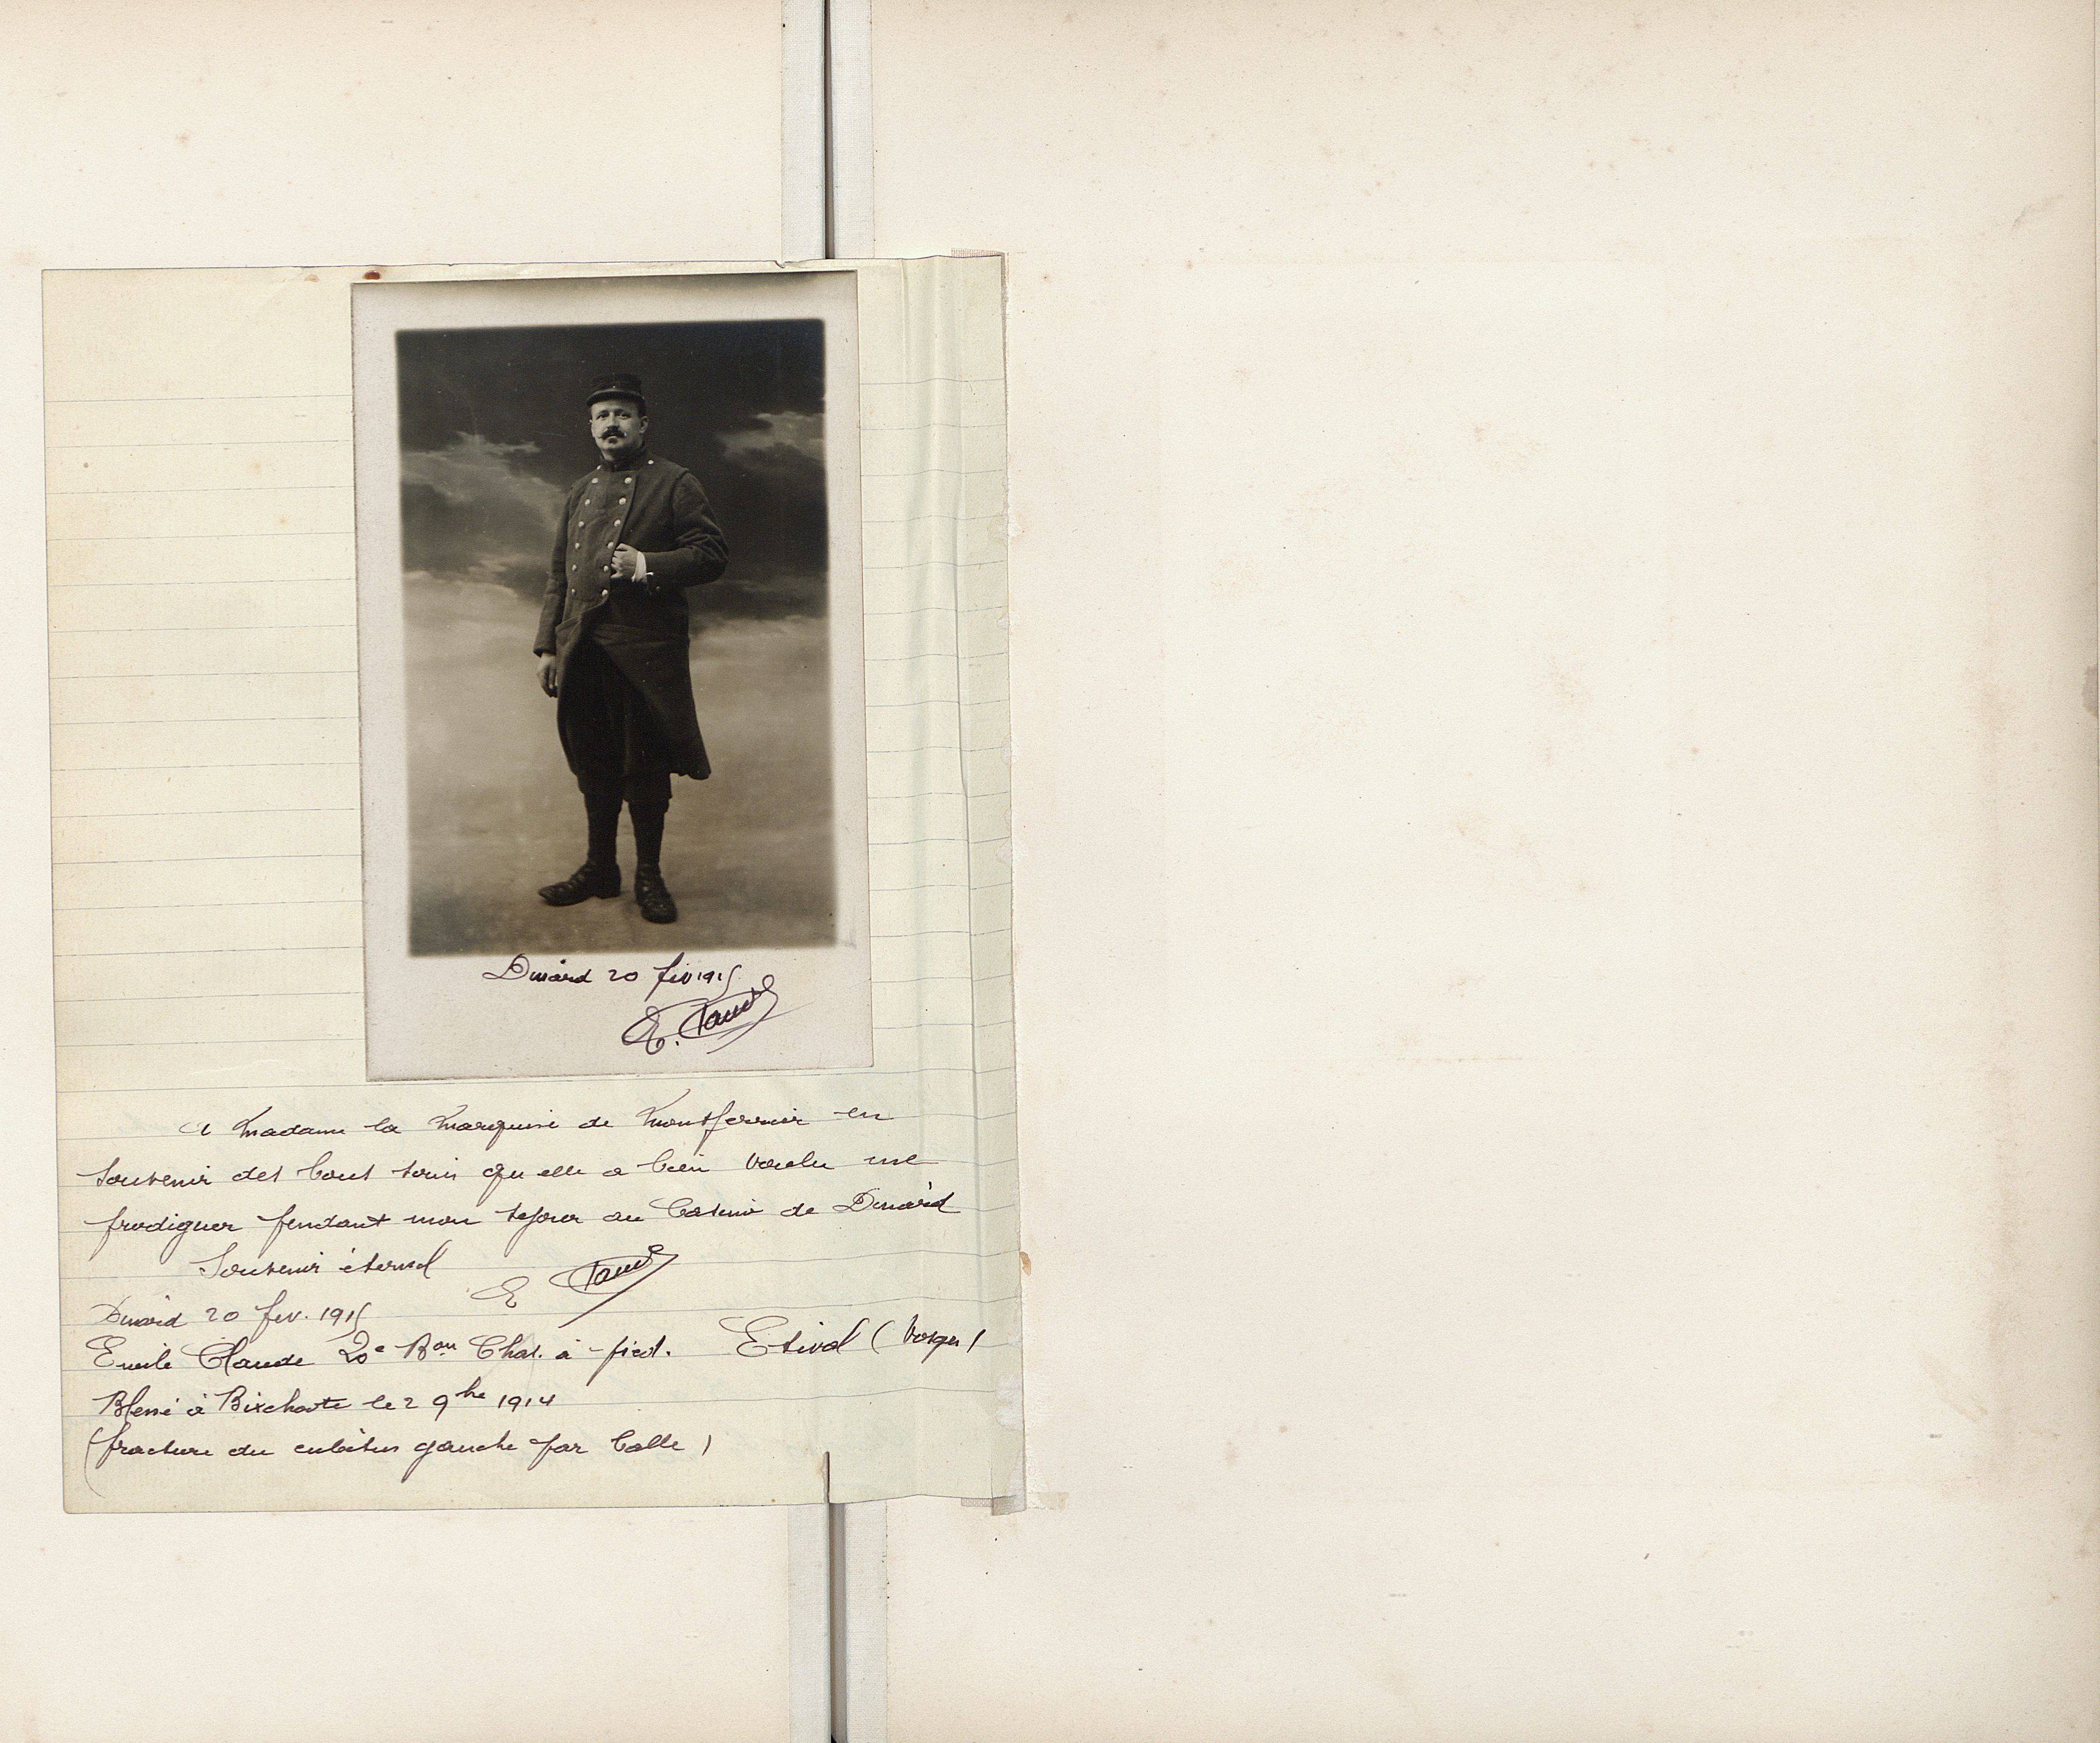 Dinard 20 fév 1915
E. Claude
A Madame la Marquise de Montferrier en
souvenir des bons soins qu'elle a bien voulu me
prodiguer pendant mon séjour au Casino de Dinard
Souvenir éternel
E Claude
Dinard 20 fev. 1915
Emile Claude 20e Bon Chas. à pied. Etival (Vosges)
Blessé à Bixchoote le 2 9bre 1914
(fracture du cubitus gauche par balle)